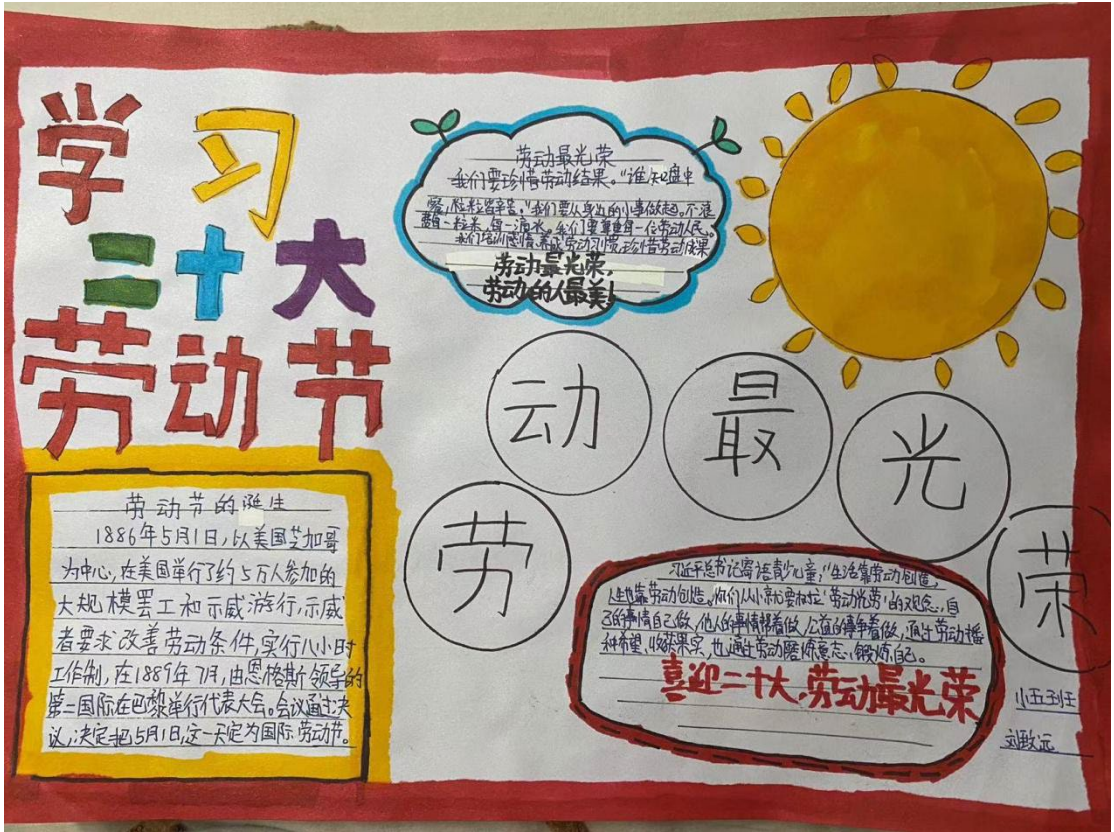 学习
二十大
劳动节
劳动最光荣
我们要珍惜劳动结果。“谁知盘中
餐,粒粒皆辛苦。”我们要从身边的小事做起。不浪
费每一粒米,每一滴水。我们要尊重每一位劳动人民。
我们培训感情,养成劳动习惯,珍惜劳动成果
劳动最光荣,
劳动的人最美!
劳动最光荣
劳动节的诞生
1886年5月1日,以美国芝加哥
为中心,在美国举行了约5万人参加的
大规模罢工和示威游行,示威
者要求改善劳动条件,实行八小时
工作制,在1889年7月,由恩格斯领导的
第二国际在巴黎举行代表大会。会议通过决
议,决定把5月1日,这一天定为国际劳动节。
习近平总书记寄语青少儿童,“生活靠劳动创造,
人生也靠劳动创造。你们从小就要树立‘劳动光荣’的观念,自
己的事情自己做,他人的事情帮着做,公益的事争着做,通过劳动播
种希望,收获果实,也通过劳动磨炼意志,锻炼自己。
喜迎二十大,劳动最光荣
小五班
刘致远